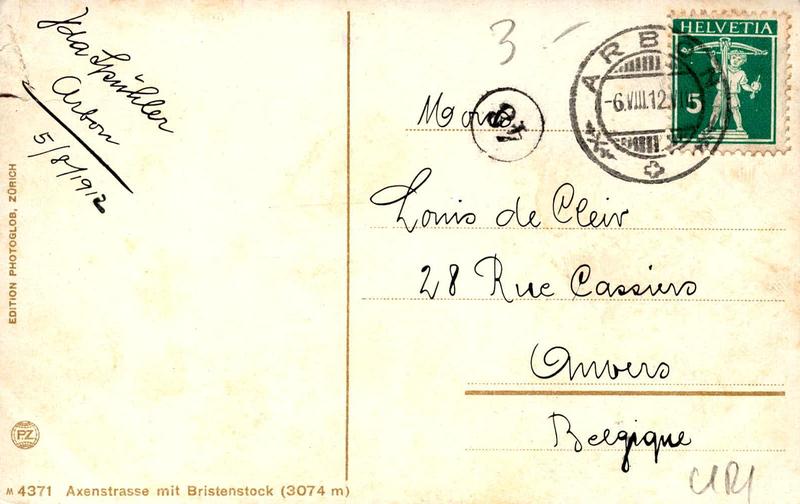 Ida Spühler
Arbon
5/8/1912
EDITION PHOTOGLOB, ZÜRICH
P.Z.
M 4371 Axenstrasse mit Bristenstock (3074 m)
3-
HELVETIA
5
ARBON
-6.VIII.12.VII
Mons
Louis de Cleir
28 Rue Cassiers
Anvers
Belgique